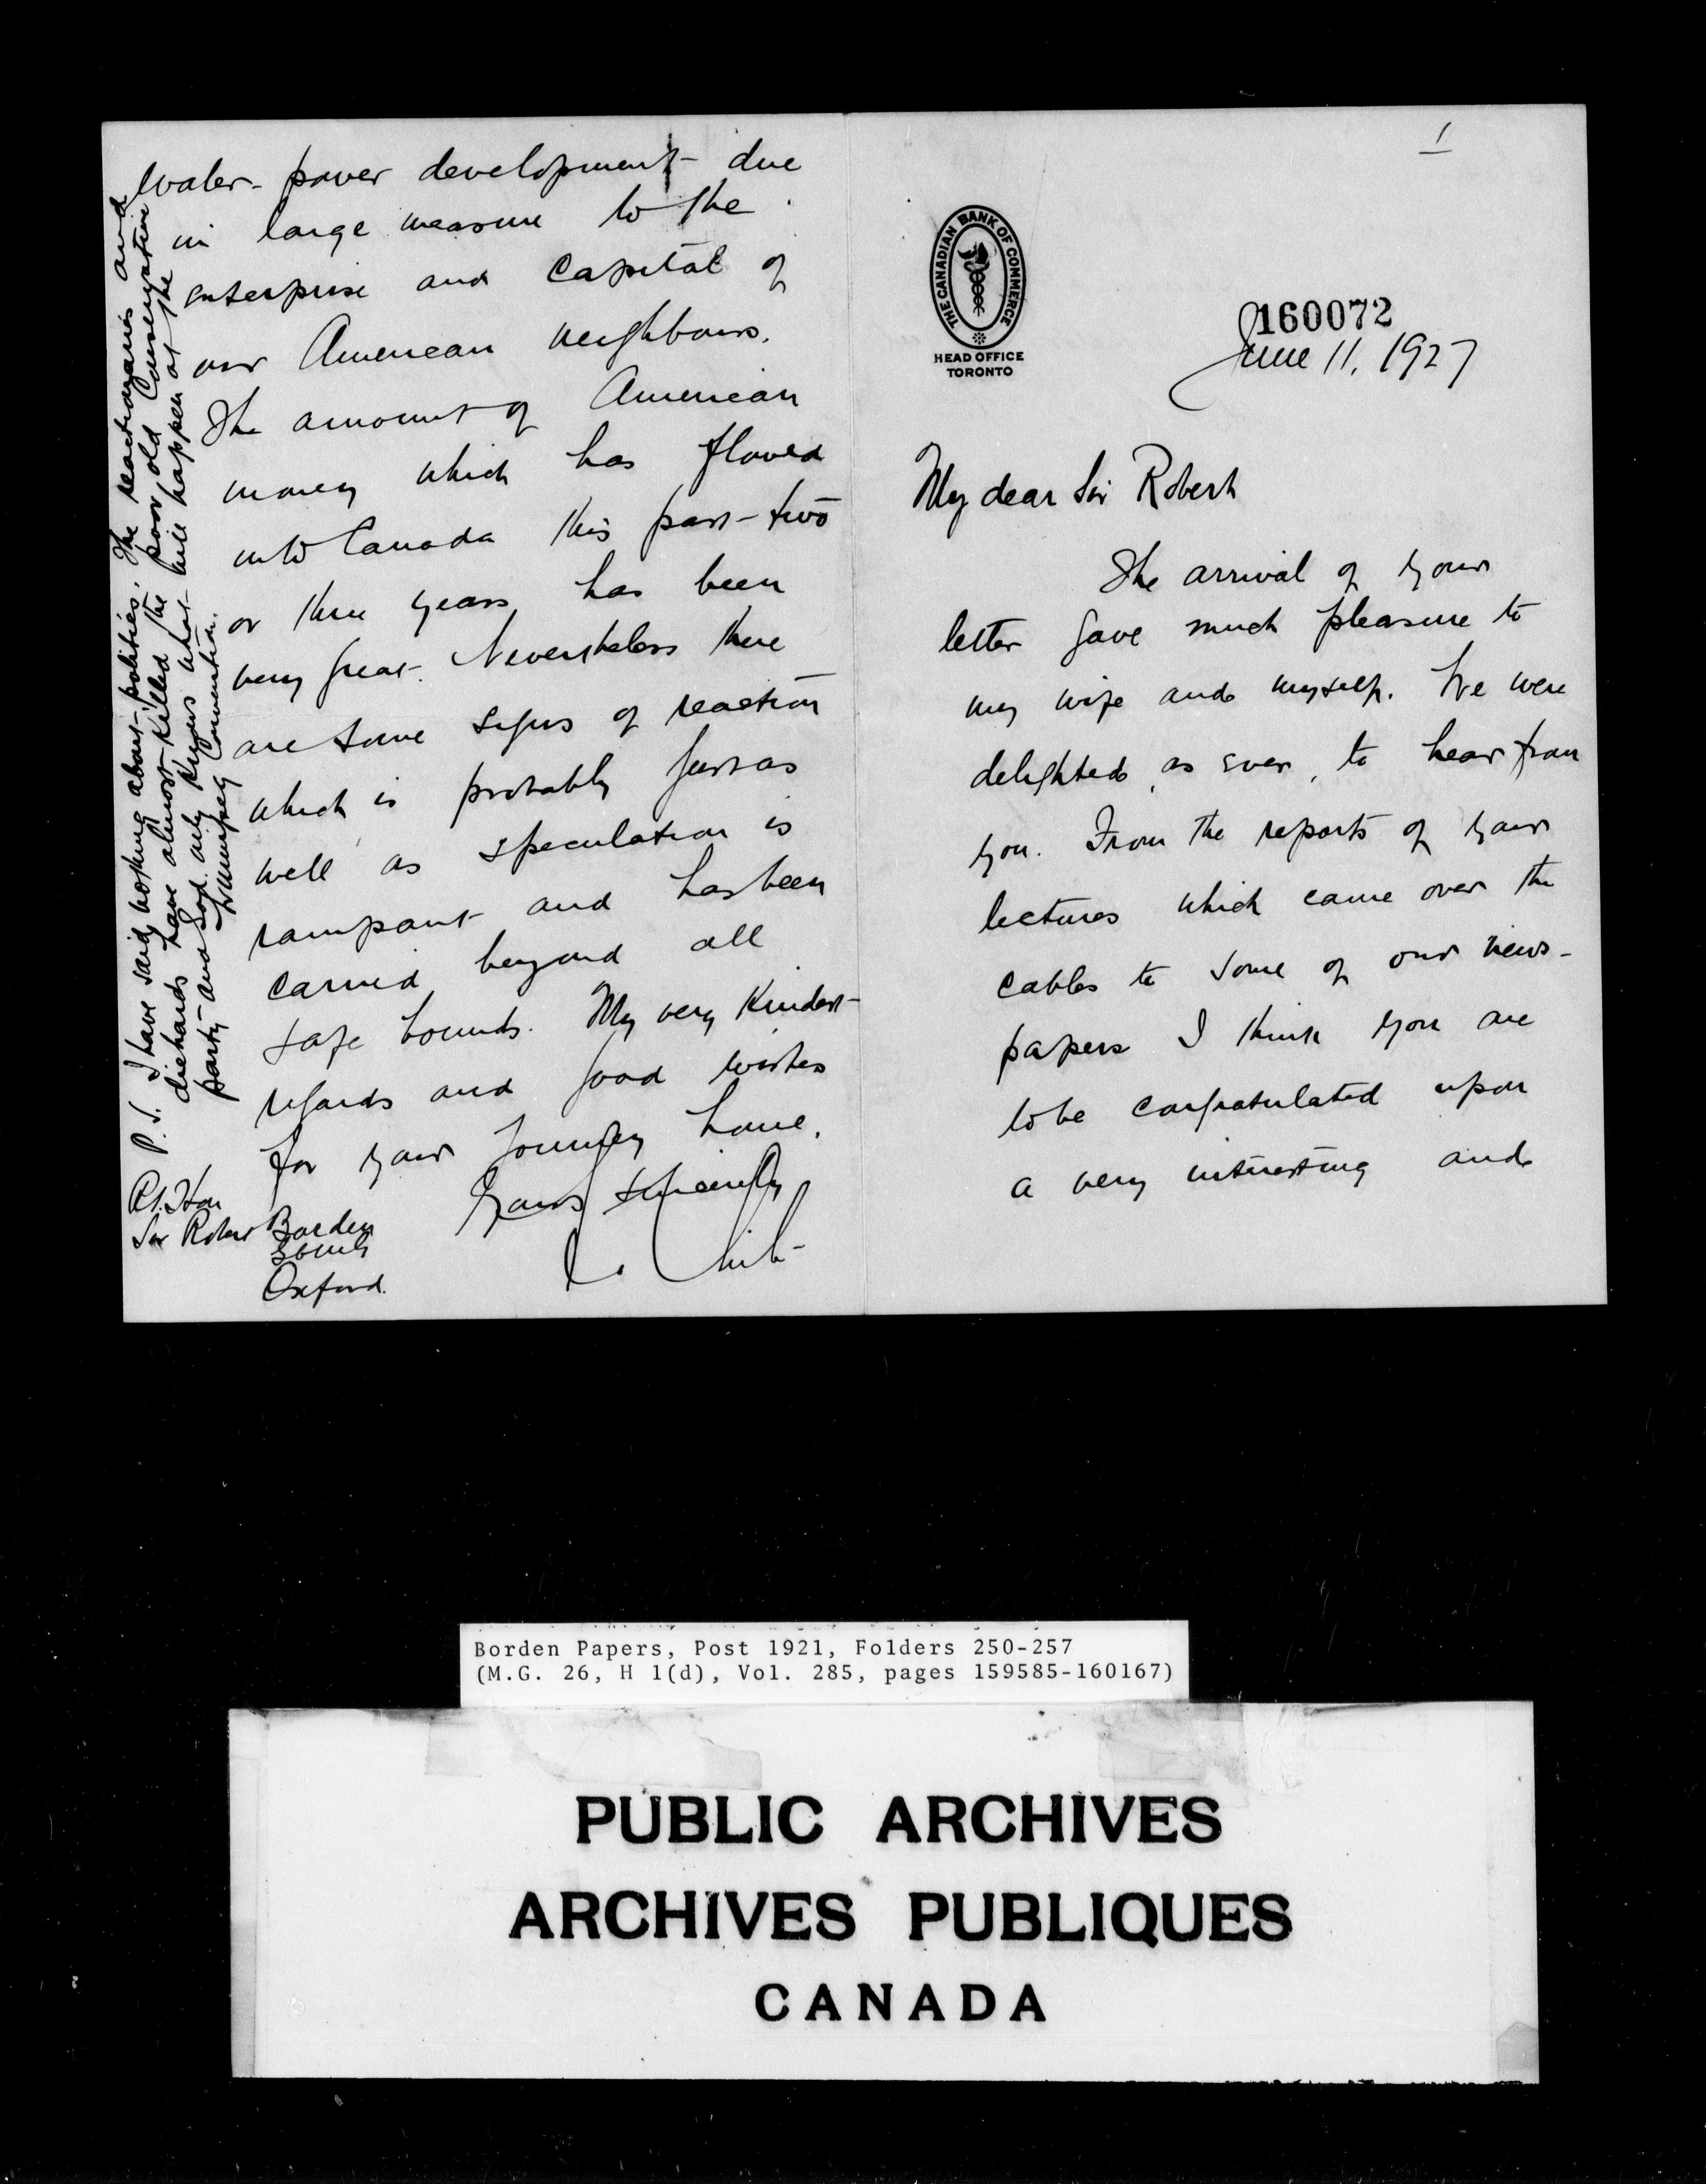 1
THE CANADIAN BANK OF COMMERCE
HEAD OFFICE
TORONTO
160072
June 11, 1927
My dear Sir Robert
The arrival of your
letter gave much pleasure to
my wife and myself. We were
delighted, as ever, to hear from
you. From the reports of your
lectures which came over the
cables to some of our news-
papers I think you are
to be congratulated upon
a very interesting and
water-power development due
in large measure to the
enterprise and capital of
our American neighbours.
The amount of American
money which has flowed
into Canada this past two
or three years has been
very great. Nevertheless there
are some signs of reaction
which is probably just as
well as speculation is
rampant and has been
carried beyond all
safe bounds. My very kindest
regards and good wishes
for your journey home.
Yours sincerely
Rt. Hon
Sir Robert Borden
Oxford.
P.S. I have said nothing about politics. The reactionaries and
diehards have almost killed the poor old Conservative
party and God only knows what will happen at the
Winnipeg Convention.
Borden Papers, Post 1921, Folders 250-257
(M.G. 26, H 1(d), Vol. 285, pages 159585-160167)
PUBLIC ARCHIVES
ARCHIVES PUBLIQUES
CANADA